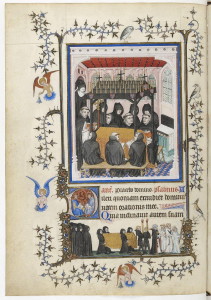 Placebo domino psalmus
Dilexi quoniam exaudiet dominus
uocem orationis mee
Quia inclinauit aurem suam